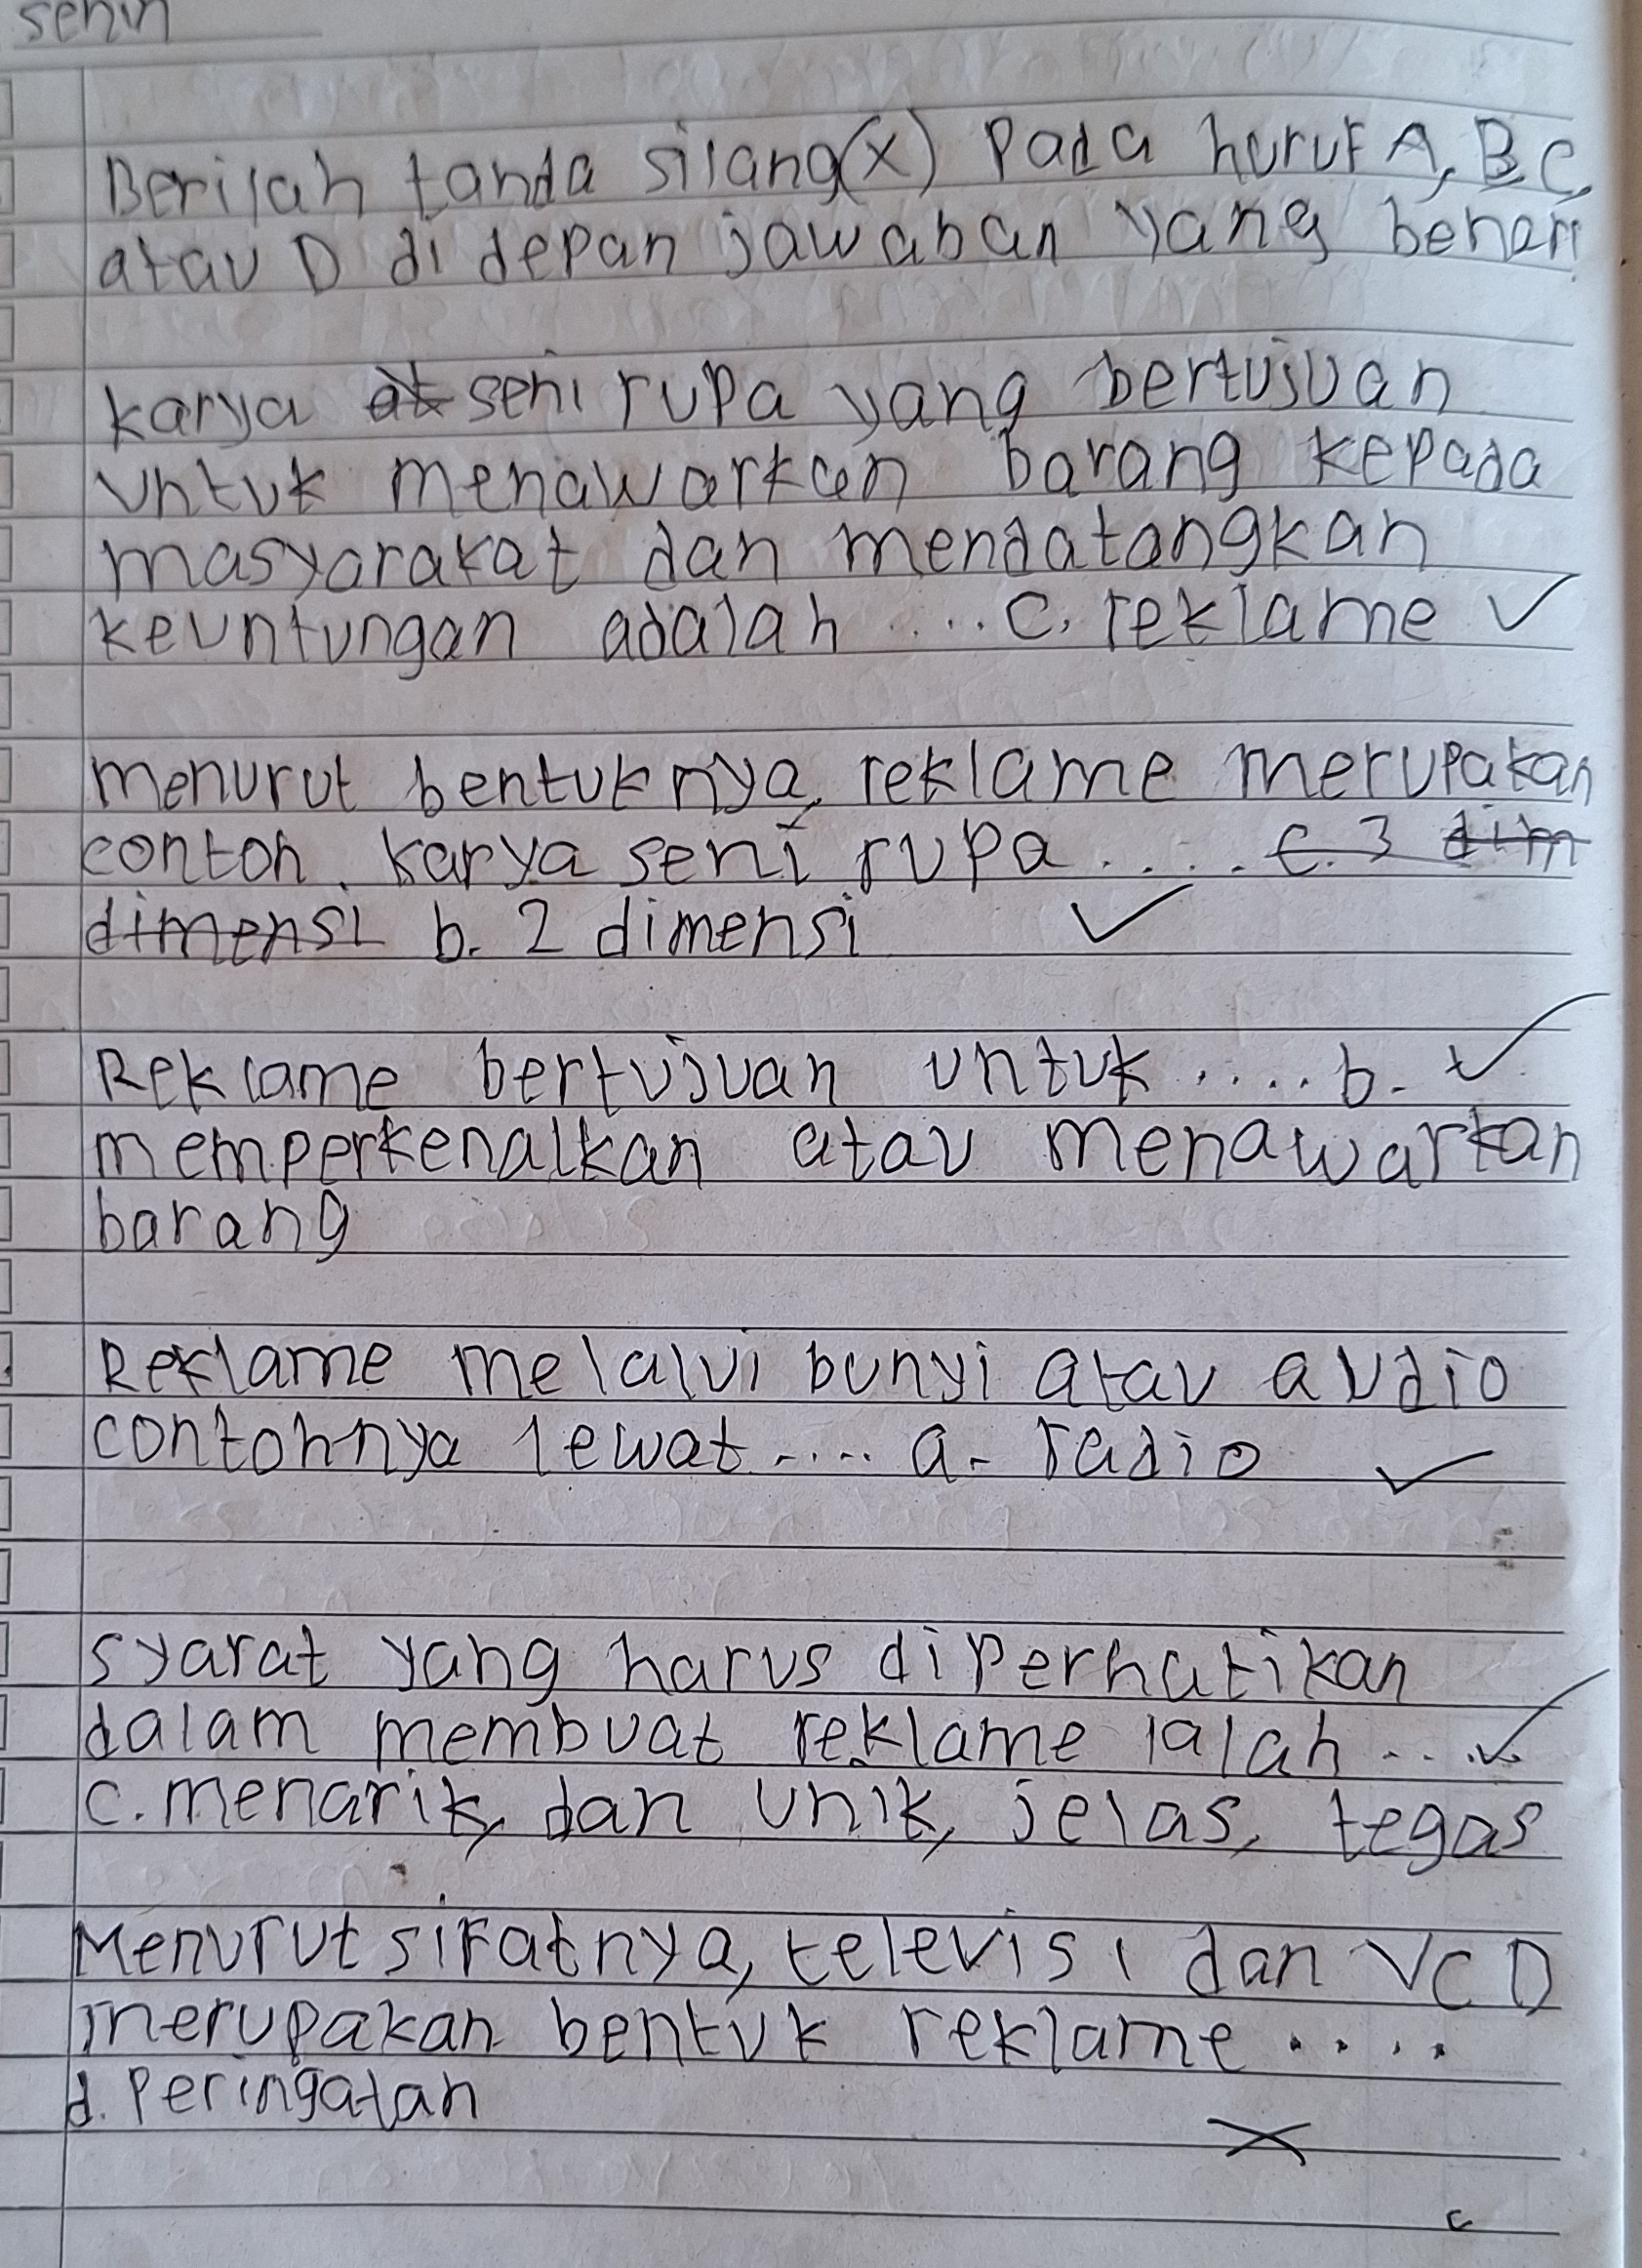 senin
Berilah tanda silang(x) Pada huruf A, B, C,
atau D di depan jawaban yang benar!
karya at seni rupa yang bertujuan
untuk menawarkan barang kepada
masyarakat dan mendatangkan
keuntungan adalah .... C. reklame ✓
menurut bentuknya, reklame merupakan
contoh karya seni rupa ..... c. 3 dim
dimensi b. 2 dimensi ✓
Reklame bertujuan untuk .... b. ✓
memperkenalkan atau menawarkan
barang
Reklame melalui bunyi atau audio
contohnya lewat .... a. radio ✓
syarat yang harus diperhatikan
dalam membuat reklame ialah .... ✓
c. menarik, dan unik, jelas, tegas
Menurut sifatnya, televisi dan VCD
merupakan bentuk reklame ....
d. Peringatan
X
c